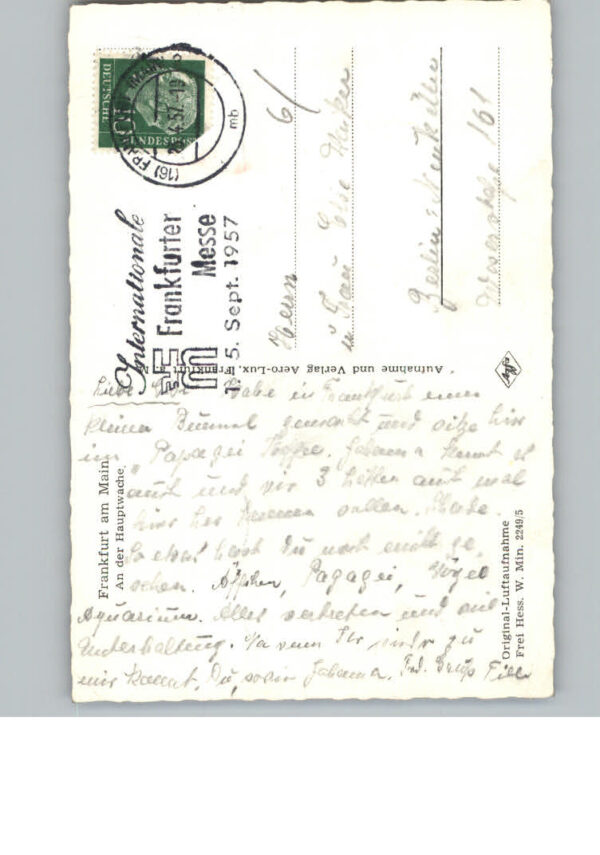 DEUTSCHE
BUNDESPOST
(16) FRANKFURT (MAIN)
.57.-19
mb
Internationale
Frankfurter
Messe
1. 5. Sept. 1957
Herrn
u Frau Else
Berlin - Neukölln
Weserstraße 161
"Aufnahme und Verlag Aero-Lux, Frankfurt a. M."
Frankfurt am Main
An der Hauptwache
Original-Luftaufnahme
Frei Hess. W. Min. 2249/5
Liebe Else Habe in Frankfurt einen
kleinen Bummel gemacht und sitze hier
im "Papagei Kaffee. Johanna kennt es
auch und wir 3 hätten auch mal
hier her kommen sollen. Schade.
So etwas hast Du noch nicht ge
sehen. Äffchen, Papagei, Vögel
Aquarium. Alles vertreten und viel
Unterhaltung. Na wenn Ihr zu
mir kommt. Du, sowie Johanna.